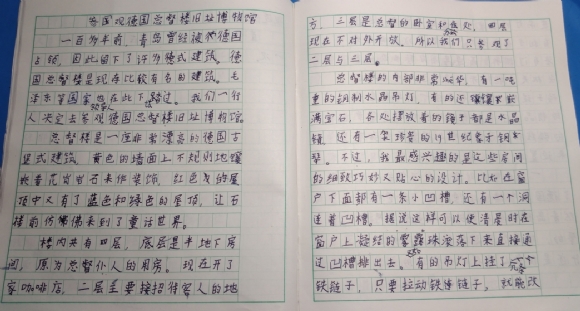 参国观德国总督楼旧址博物馆
一百多年前，青岛曾经被德国
占领，因此留下了许多德式建筑。德
国总督楼是现存比较有名的建筑。毛
泽东等国家也在此下踏过。我们一行
人决定去参观德国总督楼旧址博物馆。
总督楼是一座非常漂亮的德国古
堡式建筑，黄色的墙面上不规则地镶
嵌着花岗岩石来作装饰，红色的屋
顶中又有了蓝色和绿色的屋顶，让
楼前仿佛来到了童话世界。
楼内共有四层，底层是半地下房
间，原为总督仆人的用房。现在开了
家咖啡店，二层主要接招待客人的地
方，三层是总督的卧室和，四层
现在不对外开放。所以我们只参观了
二层与三层。
总督楼的内部非常，有一吨
重的铜制水晶吊灯，有的还镶
满宝石，各处摆放着的镜子都是水晶
镜，还有一架珍贵的19世纪钢
琴。不过，我最感兴趣的是这些房间
的细致巧妙又贴心的设计。比如在窗
户下面都有一条小凹槽，还有一个洞
连着凹槽。据说这样可以使清晨时在
窗户上凝结的露珠滚落下来直接通
过凹槽排出去。有的吊灯上挂了一个
铁链子，只要拉动铁链子，就能改